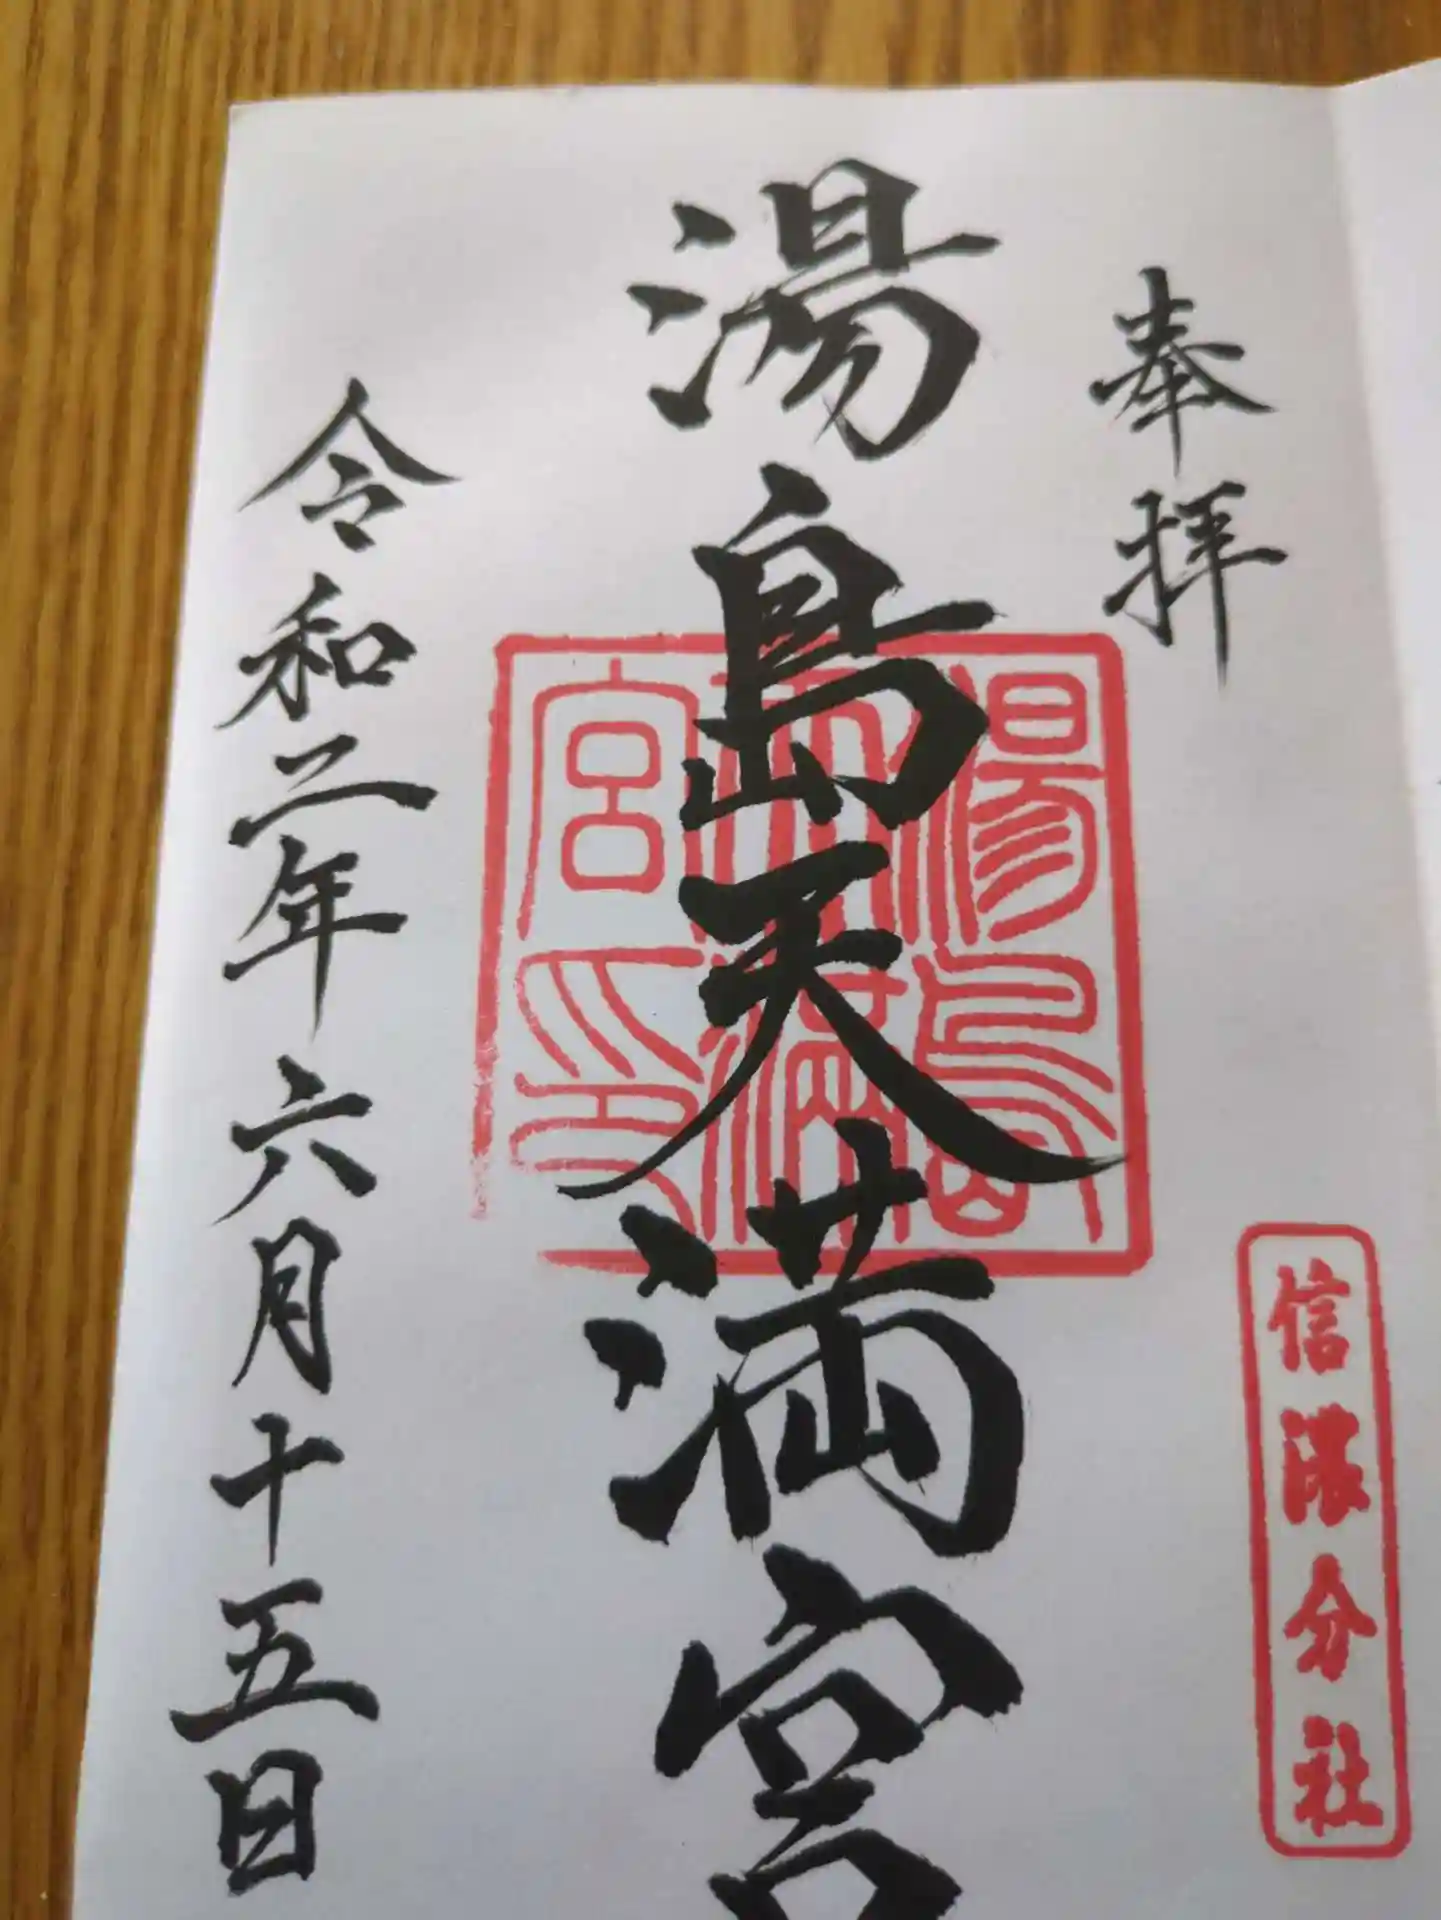 奉拝
信濃分社
湯島天満宮
湯島天満宮印
令和二年六月十五日